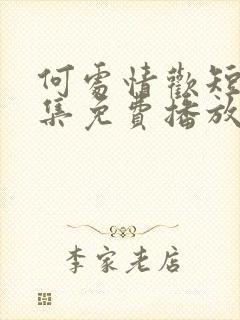 何處情歡短
集免費播放
李家老店